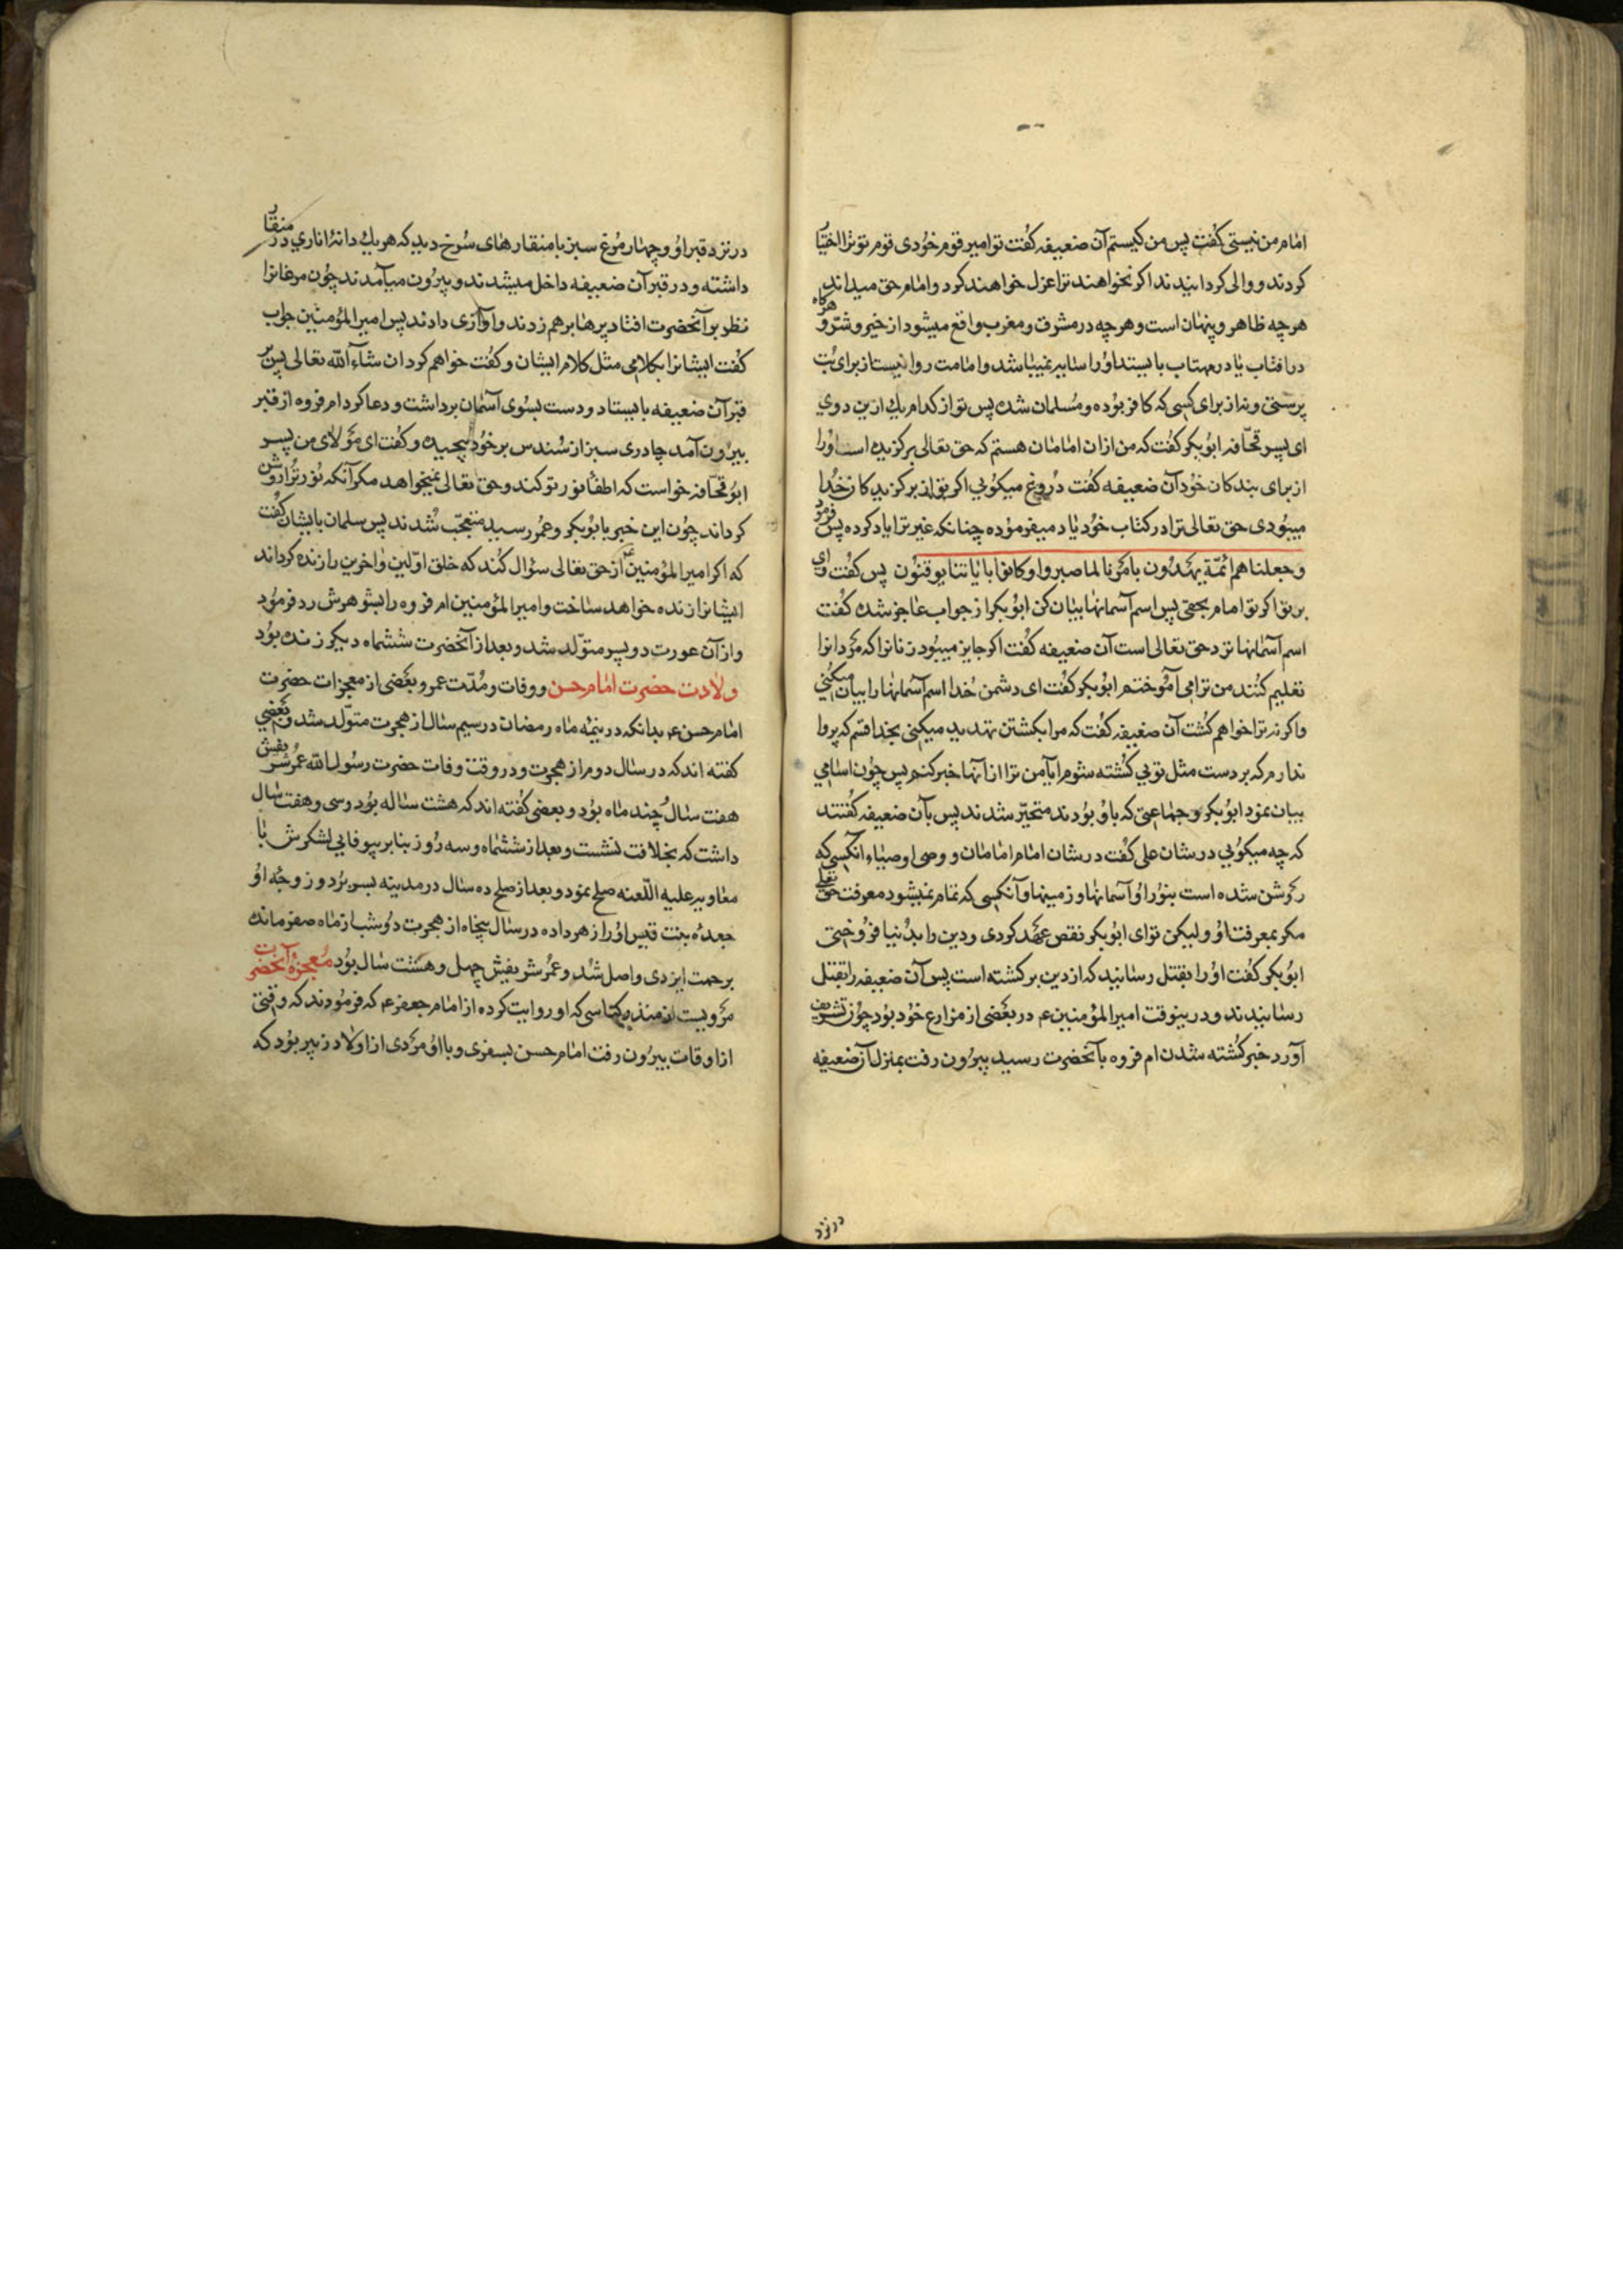 امام من نیستی گفت پس من کیستم آن ضعیفه گفت تو امیر قوم خودی قوم تو ترا اختیار
کردند و والی گردانیدند اگر نخواهند ترا عزل خواهند کرد و امام حق میداند
هرچه ظاهر و پنهان است و هرچه در مشرق و مغرب واقع میشود از خیر و شر و هرگاه
در آفتاب یا در مهتاب بایستد او را سایه نمیباشد و امامت روا نیست از برای بت
پرستی و نه از برای کسی که کافر بوده و مسلمان شده پس تو از کدام یك ازین دوی
ای پسر قحافه ابوبکر گفت که من ازان امامان هستم که حق تعالی برگزیده است او را
از برای بندکان خود آن ضعیفه گفت دروغ میگوئی اگر تو از برگزیدگان خدا
میبودی حق تعالی ترا در کتاب خود یاد میفرموده چنانکه غیر ترا یاد کرده پس فرمود
وجعلناهم ائمّة یهدون بامرنا لما صبروا و کانوا بایاتنا یوقنون پس گفت وای
بر تو اگر تو امام بحقی پس اسم آسمانها بیان کن ابوبکر از جواب عاجز شده گفت
اسم آسمانها نزد حق تعالی است آن ضعیفه گفت اگر جایز میبود زنانرا که مردانرا
تعلیم کنند من ترا می آموختم ابوبکر گفت ای دشمن خدا اسم آسمانها را بیان میکنی
واگرنه ترا خواهم کشت آن ضعیفه گفت که مرا بکشتن تهدید میکنی بخدا قسم که پروا
ندارم که بر دست مثل توئی کشته شوم امّا من ترا از آنها خبر کنم پس چون اسامی
بیان نمود ابوبکر و جماعتی که با او بودند متحیّر شدند پس بآن ضعیفه گفتند
که چه میگوئی در شان علی گفت در شان امام امامان و وصی اوصیاء انکسی که
روشن شده است بنور او آسمانها و زمینها و آنکسی که تمام نمیشود معرفت حق تعالی
مگر بمعرفت او و لیکن تو ای ابوبکر نقض عهد کردی و دین را بدنیا فروختی
ابوبکر گفت او را بقتل رسانید که از دین برگشته است پس آن ضعیفه را بقتل
رسانیدند و درینوقت امیرالمؤمنین ع در بعضی از مزارع خود بود چون تشریف
آورد خبر کشته شدن ام فروه بآنحضرت رسید بیرون رفت بمنزل آن ضعیفه
در نزد
در نزد قبر او و چهار مرغ سبز با منقارهای سرخ دید که هر یك دانهٔ اناری در منقار
داشته و در قبر آن ضعیفه داخل میشدند و بیرون میآمدند چون مرغانرا
نظر بر آنحضرت افتاد پرها بر هم زدند و آوازی دادند پس امیرالمؤمنین جواب
گفت ایشانرا بکلامی مثل کلام ایشان و گفت خواهم کرد ان شاءالله تعالی پس بر
قبر آن ضعیفه بایستاد و دست بسوی آسمان برداشت و دعا کرد ام فروه از قبر
بیرون آمد چادری سبز از سندس بر خود پیچیده و گفت ای مولای من پسر
ابو قحافه خواست که اطفا نور تو کند و حق تعالی نمیخواهد مگر آنکه نور ترا روشن
گرداند چون این خبر بابوبکر و عمر رسید متعجّب شدند پس سلمان بایشان گفت
که اگر امیرالمؤمنین ع از حق تعالی سؤال کند که خلق اوّلین و اخرین را زنده گرداند
ایشانرا زنده خواهد ساخت و امیرالمؤمنین ام فروه را بشوهرش رد فرمود
و از آن عورت دو پسر متولّد شد و بعد از آنحضرت ششماه دیگر زنده بود
ولادت حضرت امام حسن و وفات و مدّت عمر و بعضی از معجزات حضرت
امام حسن ع بدانکه در نیمهٔ ماه رمضان در سیم سال از هجرت متولّد شد و بعضی
گفته اند که در سال دوم از هجرت و در وقت وفات حضرت رسول الله عمر شریفش
هفت سال و چند ماه بود و بعضی گفته اند که هشت ساله بود و سی و هفت سال
داشت که بخلافت نشست و بعد از ششماه و سه روز بنابر بیوفایی لشکرش با
معاویه علیه اللّعنه صلح نمود و بعد از صلح ده سال در مدینه بسر برد و زوجهٔ او
جعده بنت قیس او را زهر داده در سال پنجاه از هجرت دو شب از ماه صفر مانده
برحمت ایزدی واصل شد و عمر شریفش چهل و هشت سال بود معجزهٔ آنحضرت
مرویست از منذر کناسی که او روایت کرده از امام جعفر ع که فرمودند که وقتی
از اوقات بیرون رفت امام حسن بسفری و با او مردی از اولاد زبیر بود که